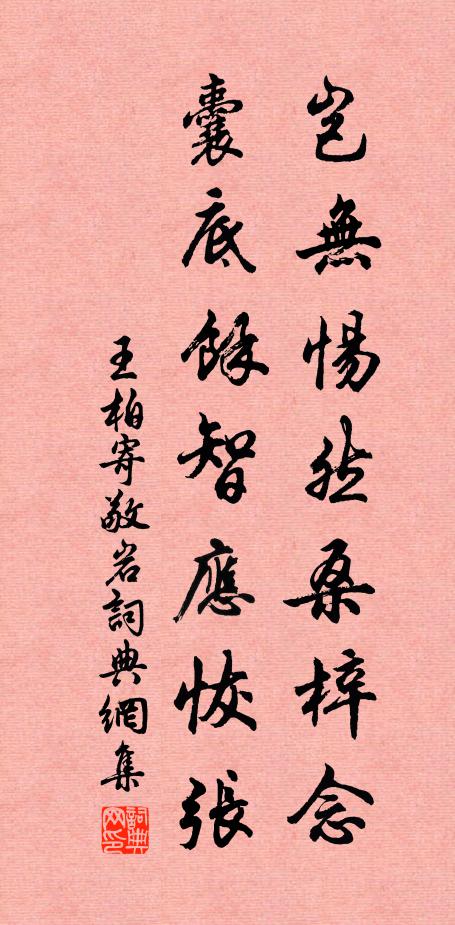 豈無惕然桑梓念
囊底餘智應恢張
王柏寄敬岩詞典網集
詞典網印